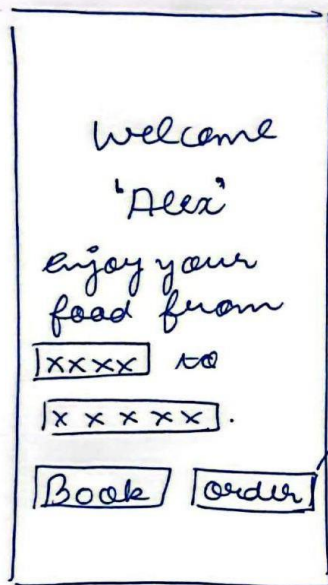 Welcome
'Alex'
enjoy your
food from
xxxx to
xxxxx.
Book order